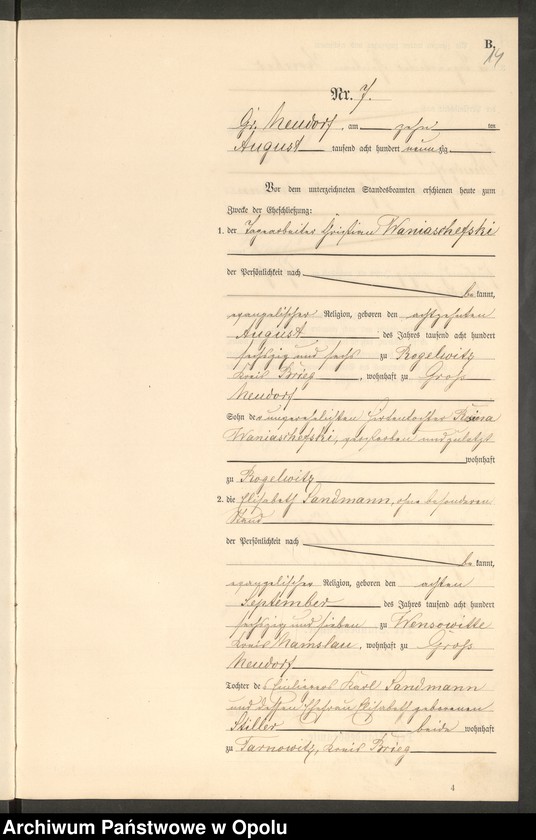 B.
14
Nr. 7.
Gr. Neudorf, am zehn ten
August tausend acht hundert neunzig
Vor dem unterzeichneten Standesbeamten erschienen heute zum
Zwecke der Eheschließung:
1. der Tagearbeiter Christian Waniaschefski
der Persönlichkeit nach
be kannt,
evangelischer Religion, geboren den achtzehnten
August des Jahres tausend acht hundert
sechszig und sechs zu Rogelwitz
Kreis Brieg, wohnhaft zu Groß
Neudorf
Sohn der unverehelichten Hirtentochter Rosina
Waniaschefski, gestorben und zuletzt
wohnhaft
zu Rogelwitz
2. die Elisabeth Sandmann, ohne besonderen
Stand
der Persönlichkeit nach
be kannt,
evangelischer Religion, geboren den achten
September des Jahres tausend acht hundert
sechszig und sieben zu Wensowitte
Kreis Namslau, wohnhaft zu Groß
Neudorf
Tochter des Karl Sandmann
und dessen Ehefrau Elisabeth geborenen
Stiller beide wohnhaft
zu Tarnowitz, Kreis Brieg
4
Archiwum Państwowe w Opolu